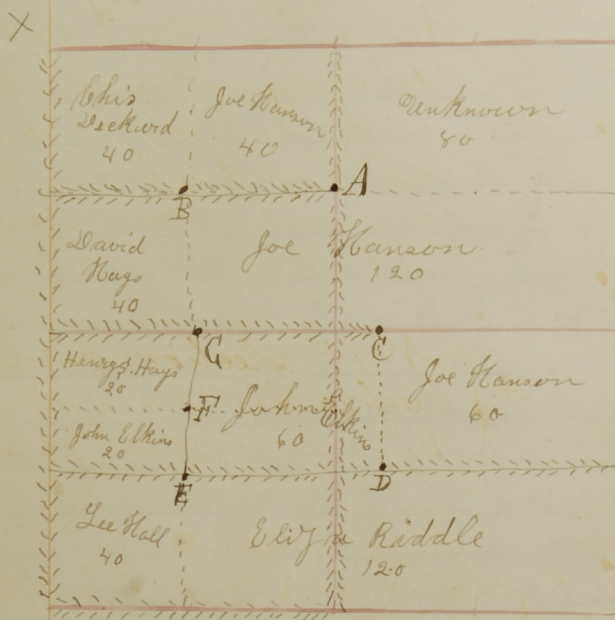 X
Chis
Deckard
40
Joe Hanson
40
Unknown
80
A
B
David
Hays
40
Joe Hanson
120
G
C
Henry S. Hays
20
F
John Elkins
60
Joe Hanson
60
John Elkins
20
E
D
Lee Hall
40
Eliza Riddle
120